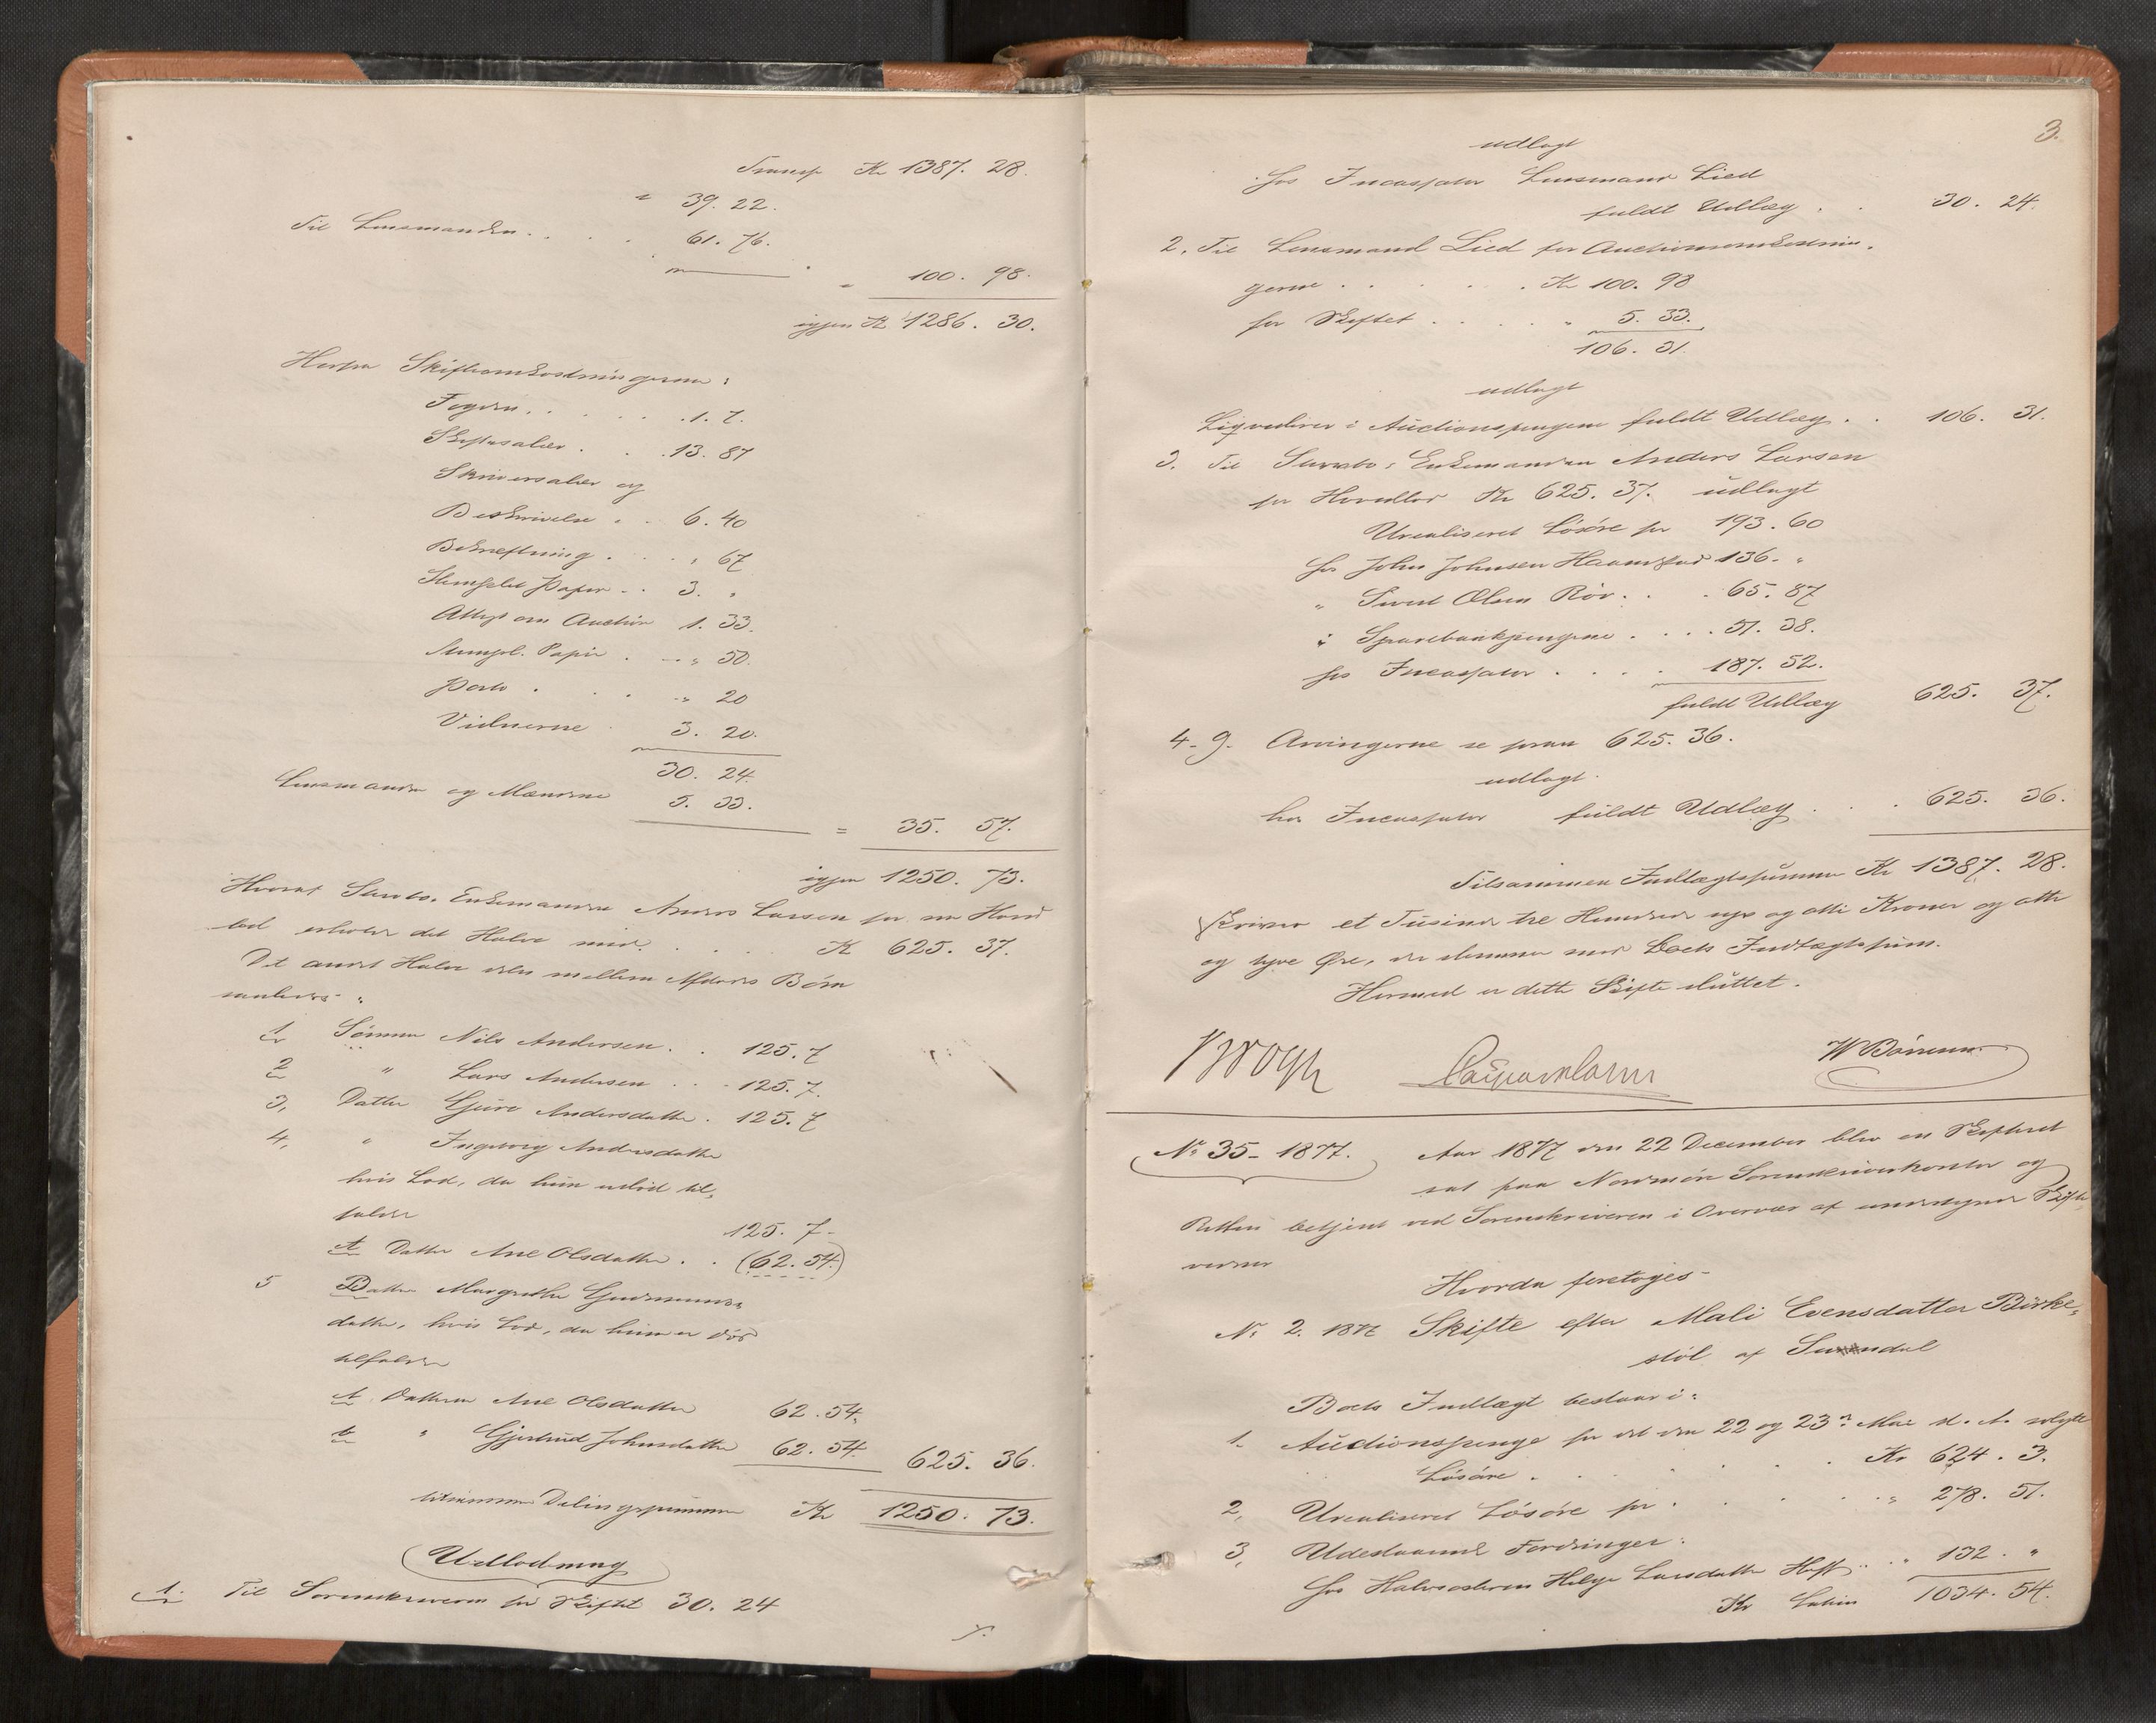 Transp Kr 1387. 28.
" 39. 22.
Til Lensmanden . . . 61. 76.
" 100. 98.
igjen Kr 1286. 30.
Herfra Skifteomkostningerne:
Fogden . . . . 1. 7.
Skiftesalær . . 13. 87
Skriversalær og
Beskrivelse . . 6. 40
Bekræftning . . " 67
Stemplet Papir . . 3. "
Attest om Auction 1. 33.
Stempl. Papir . . " 50.
Porto . . . " 20
Vidnerne . 3. 20.
30. 24.
Lensmanden og Mændene 5. 33.
= 35. 57.
igjen 1250. 73.
Hvoraf Enkemanden Anders Larsen for sin Hoved
lod erholder det Halve med . . . K 625. 37.
Det andet Halve deles mellem Afdødes Børn
saaledes:
1 Sønnen Nils Andersen . . 125. 7
2 " Lars Andersen . . 125. 7.
3, Datter Guro Andersdatter . 125. 7
4, " Ingeborg Andersdatter
hvis Lod, da hun er død til,
falder
125. 7-
A Datter Ane Olsdatter . . (62. 54.)
5 Datter Margrethe Gudmunds,
datter, hvis Lod, da hun er død
tilfalder
A. Datteren Ane Olsdatter 62. 54.
b " Gjertrud Johnsdatter 62. 54. 625. 36.
tilsammen Delingssummen Kr 1250. 73.
Udlodning
1. Til Sorenskriveren for Skiftet 30. 24
3.
udlagt
hos Incassator Lensmand Lied
fuldt Udlæg . . 30. 24.
2, Til Lensmand Lied for Auctionsomkostnin,
gerne . . . . . Kr 100. 98
for Skiftet . . . . " 5. 33.
106. 31.
udlagt
Liqviderer i Auctionspengene fuldt Udlæg . . 106. 31.
3. Til Enkemanden Anders Larsen
for Hovedlod Kr 625. 37. udlagt
Urealiseret Løsøre for 193. 60
hos John Johnsen Haanstad 136. "
" Sivert Olsen Röv . . . 65. 87
i Sparebankpengene . . . . 51. 38.
hos Incassator . . . . 187. 52.
fuldt Udlæg 625. 37.
4-9. Arvingerne se foran 625. 36.
udlagt
hos Incassator fuldt Udlæg . . . 625. 36.
Tilsammen Indtægtssummen Kr 1387. 28.
Skriver et Tusind tre Hundrede syv og otti Kroner og otte
og tyve Øre, der stemmer med Boets Indtægtssum.
Hermed er dette Skifte sluttet.
Brogh
W Börresen
No 35- 1877. Aar 1877 den 22 December blev en Skifteret
sat paa Nordmøre Sorenskriverkontor og
Retten betjent ved Sorenskriveren i Overvær af undertegnede Skifte,
vidner
Hvorda foretoges
No 2. 1877 Skifte efter Mali Evensdatter Birke,
støl af Surendal
Boets Indtægt bestaar i:
1. Auctionspenge for det den 22 og 23de Mai d. A. solgte
Løsøre . . . . . . Kr 624. 3.
2, Urealiseret Løsøre for . . . . . " 278. 51.
3, Udestaaende Fordringer:
hos Halvsøsteren Helge Larsdatter Hoft . . " 132. "
Kr Latus 1034. 54.